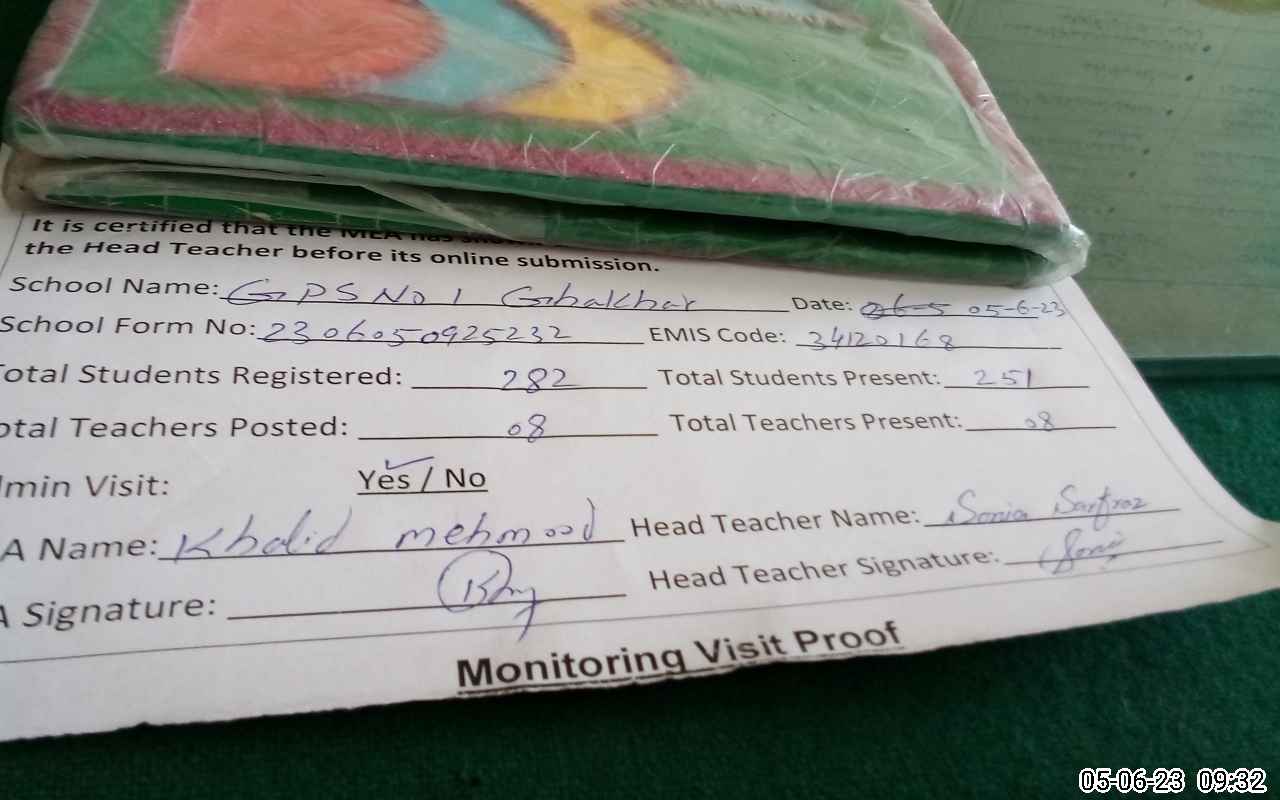 It is certified that the MEA has
the Head Teacher before its online submission.
School Name: GPS No 1 Ghakhar Date: 05-6-23
School Form No: 2306050925232 EMIS Code: 34120168
Total Students Registered: 282 Total Students Present: 251
otal Teachers Posted: 08 Total Teachers Present: 08
dmin Visit: Yes / No
A Name: Khalid mehmood Head Teacher Name: Sonia Sarfraz
A Signature: Head Teacher Signature:
Monitoring Visit Proof
05-06-23 09:32